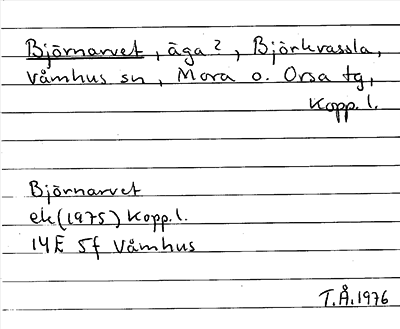 Björnarvet, äga ?, Björkvassla,
Våmhus sn, Mora o. Orsa tg,
Kopp. l.
Björnarvet
ek (1975) Kopp. l.
14E 5f Våmhus
T.Å. 1976